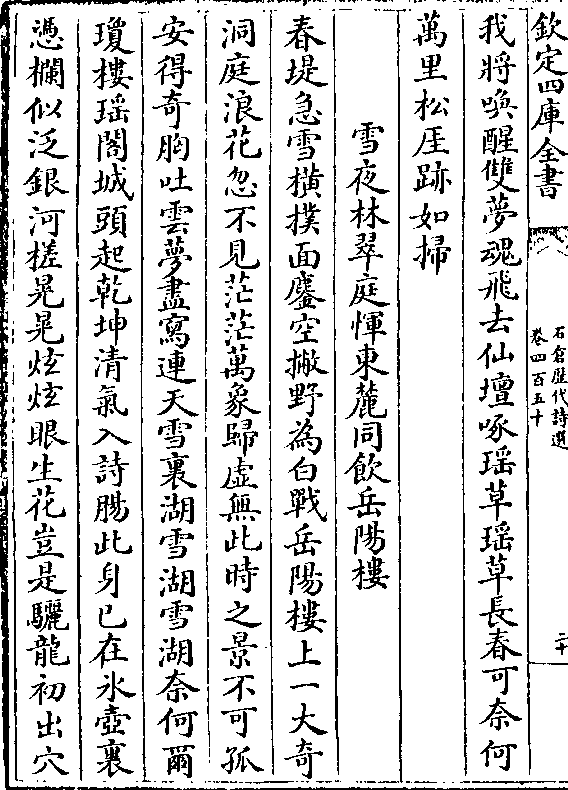 欽定四庫全書
石倉歷代詩選
卷四百五十
二十
我將喚醒雙夢魂飛去仙壇啄瑶草瑶草長春可奈何
萬里松厓跡如掃
雪夜林翠庭惲東麓同飲岳陽樓
春堤急雪橫撲面鏖空撇野為白戰岳陽樓上一大奇
洞庭浪花忽不見茫茫萬象歸虛無此時之景不可孤
安得奇胸吐雲夢盡寫連天雪裏湖雪湖雪湖奈何爾
瓊樓瑶閣城頭起乾坤清氣入詩腸此身已在氷壺裏
憑欄似泛銀河槎晃晃炫炫眼生花豈是驪龍初出穴